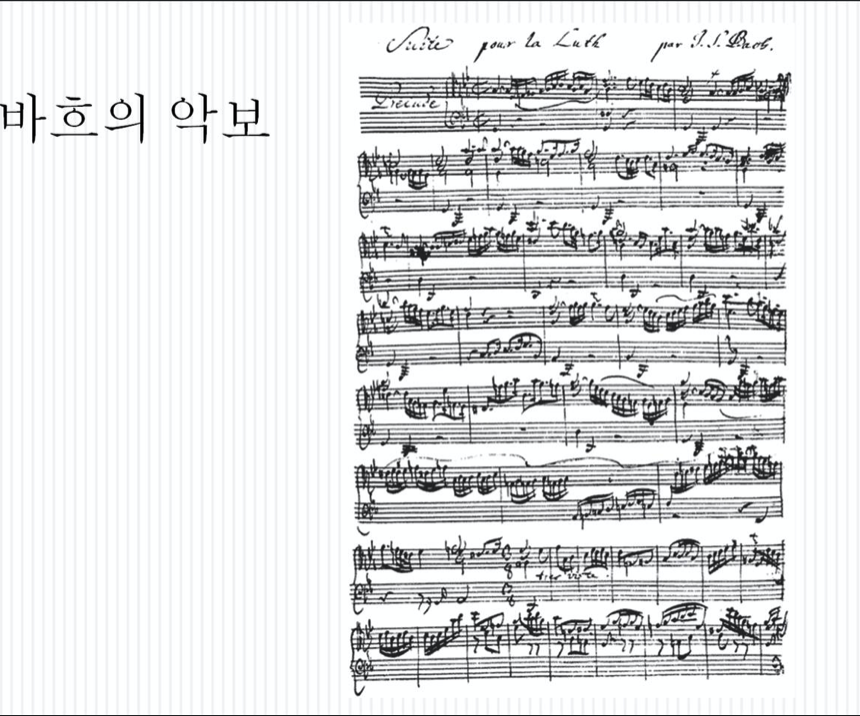 바흐의 악보
Suite pour la Luth par J. S. Bach.
Prelude
tres viste.